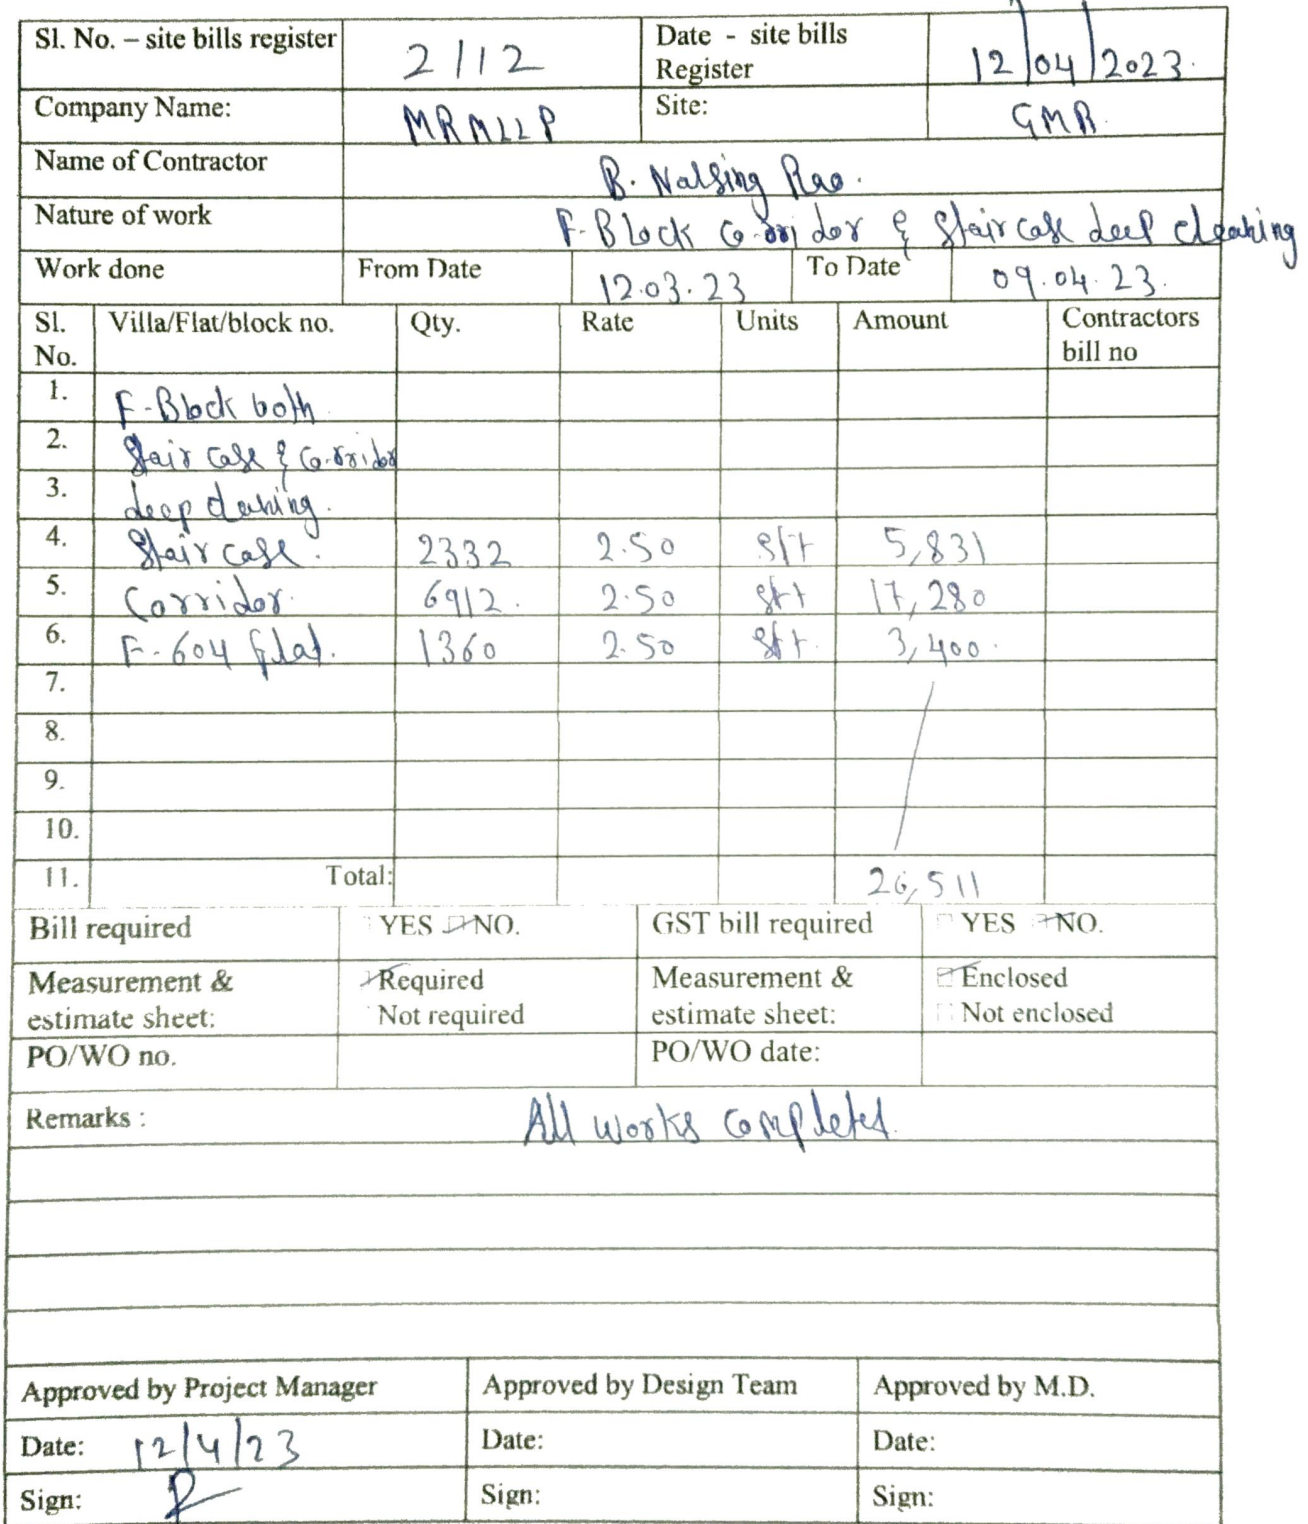 Sl. No. – site bills register 2112 Date - site bills Register 12/04/2023.
Company Name: MRMLLP Site: GMR.
Name of Contractor B. Nalsing Rao.
Nature of work F-Block Corridor & Staircase deep cleaning
Work done From Date 12.03.23 To Date 09.04.23.
Sl. No. Villa/Flat/block no. Qty. Rate Units Amount Contractors bill no
1. F-Block both
2. Stair case & Corridor
3. deep cleaning.
4. Stair case. 2332 2.50 sft 5,831
5. Corridor. 6912. 2.50 sft 17,280
6. F-604 flat. 1360 2.50 sft. 3,400.
7.
8.
9.
10.
11. Total: 26,511
Bill required YES NO. GST bill required YES NO.
Measurement & estimate sheet: Required Not required Measurement & estimate sheet: Enclosed Not enclosed
PO/WO no. PO/WO date:
Remarks : All works completed.
Approved by Project Manager Approved by Design Team Approved by M.D.
Date: 12/4/23 Date: Date:
Sign: Sign: Sign: